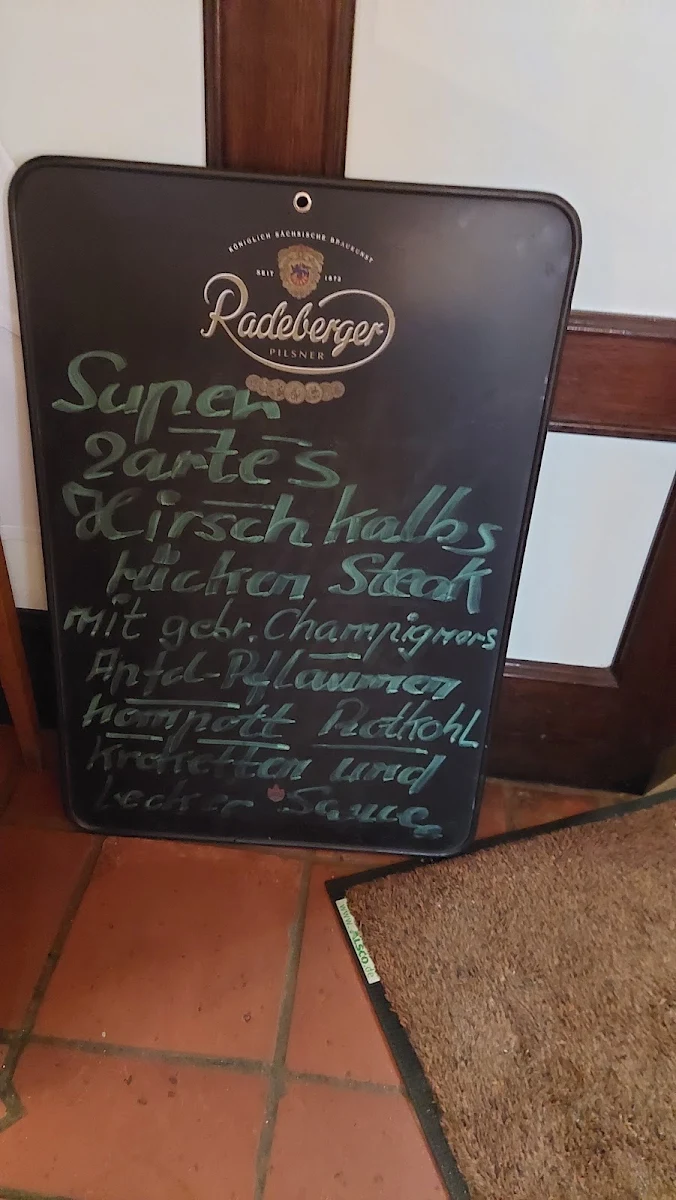 KÖNIGLICH SÄCHSISCHE BRAUKUNST
SEIT 1872
Radeberger
PILSNER
Super
zartes
Hirsch kalbs
rücken Steak
mit gebr. Champignons
Apfel-Pflaumen
kompott Rotkohl
Kroketten und
Lecker Sauce
www.ALSCO.de